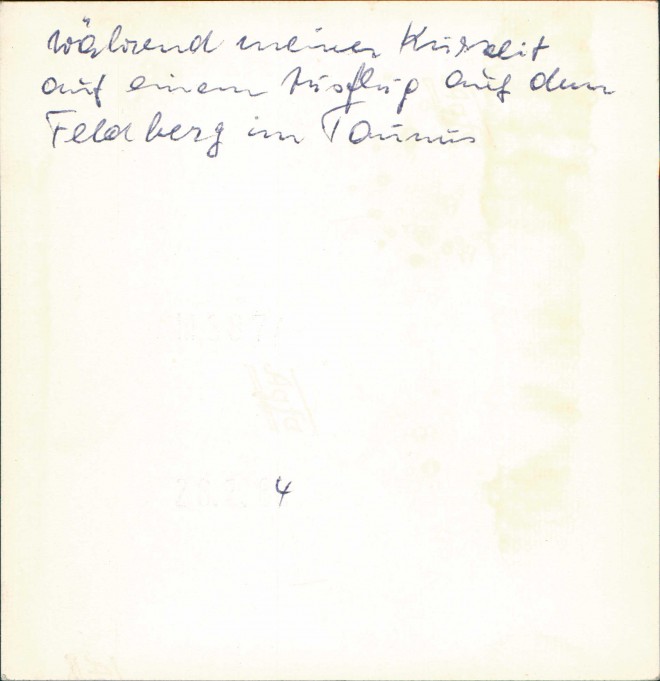 während meiner Kurzeit
auf einem Ausflug auf den
Feldberg im Taunus
4